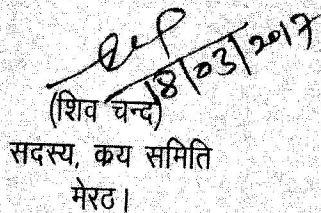 18/03/2017
(शिव चन्द)
सदस्य, कय समिति
मेरठ।